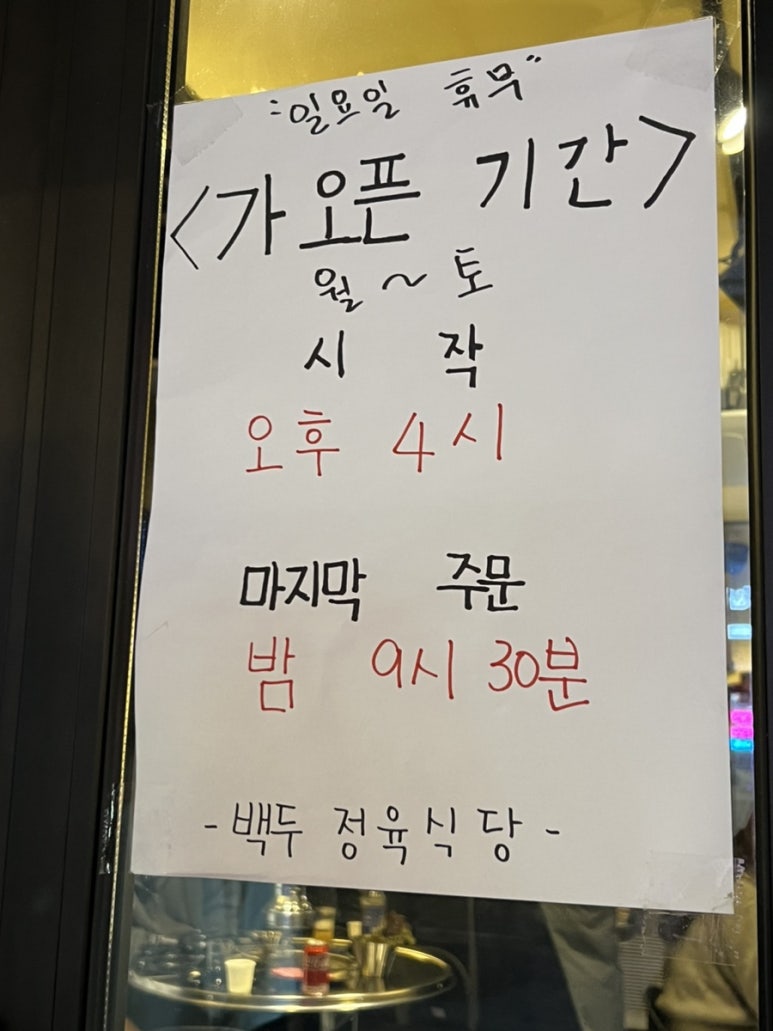 "일요일 휴무"
<가오픈 기간>
월 ~ 토
시 작
오후 4시
마지막 주문
밤 9시 30분
- 백두 정육식당 -